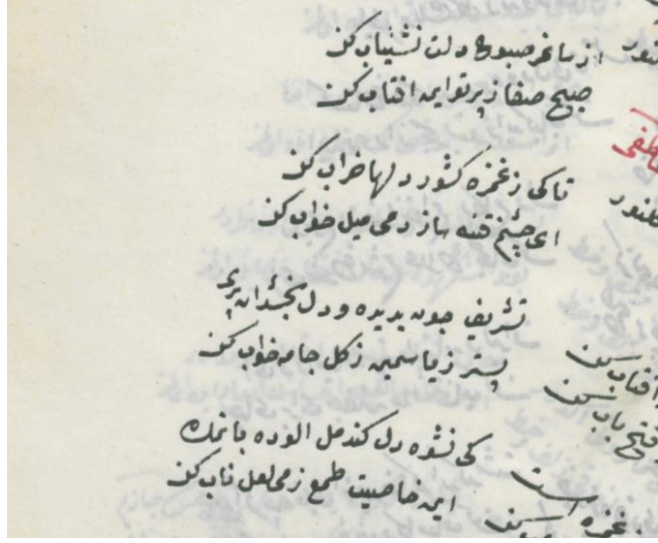 از ساغر صبوح دلت نشئیاب کن
صبح صفا ز پرتو این افتاب کن
تا کی ز غمزه کشور دلها خراب کن
ای چشم فتنه ساز دمی میل خواب کن
تشریف چون بدیده و دل
بستر ز یاسمین ز گل جامه خواب کن
کی نشوه دل کند مل الوده با نمک
این خاصیت طمع ز می لعل ناب کن
افتاب کن
فتح باب کن
غمزه است